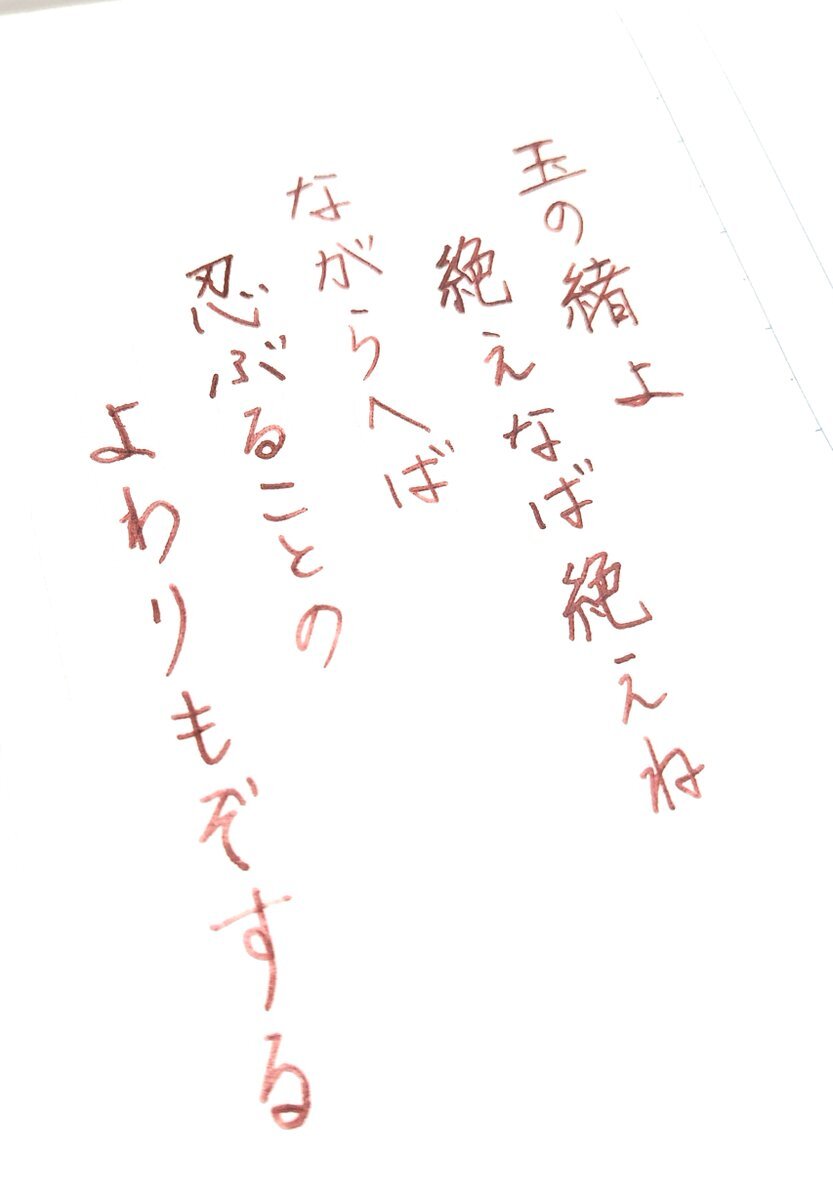 玉の緒よ
絶えなば絶えね
ながらへば
忍ぶることの
よわりもぞする